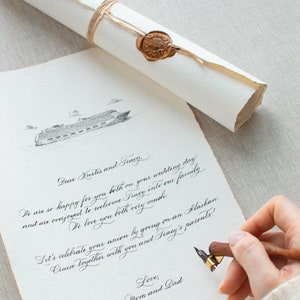 Dear Kurtis and Tracy,
We are so happy for you both on your wedding day!
and are overjoyed to welcome Tracy into our family.
We love you both very much.
Let's celebrate your union by going on an Alaskan
Cruise together with you and Tracy's parents!
Love,
Mom and Dad